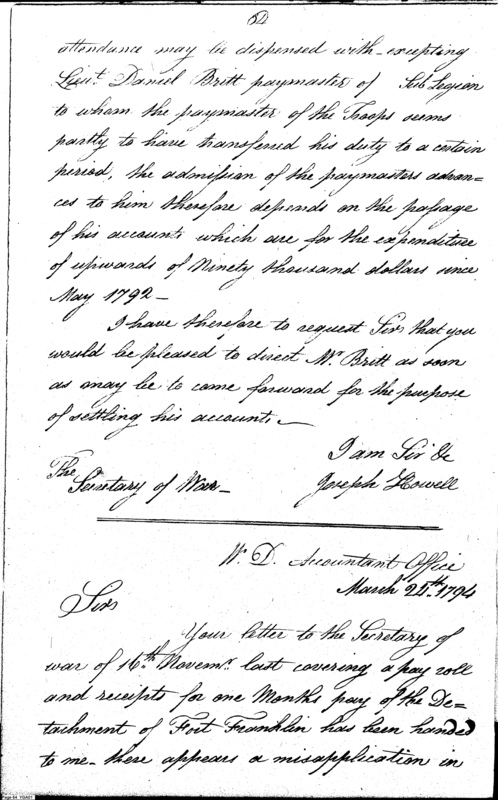 attendance may be dispensed with - excepting
Lieut. Daniel Britt paymaster of Sub Legion
to whom the paymaster of the Troops seems
partly to have transferred his duty to a certain
period, the admission of the paymasters advan=
ces to him therefore depends on the passage
of his accounts which are for the expenditure
of upwards of Ninety thousand dollars since
May 1792 -
I have therefore to request Sir that you
would be pleased to direct Mr. Britt as soon
as may be to come forward for the purpose
of settling his accounts -
I am Sir &c
The
Secretary of War - Joseph Howell
W. D. Accountant Office
March 24th. 1794
Sir
Your letter to the Secretary of
war of 16th. Novemr. last covering a pay roll
and receipts for one Months pay of the De=
tachment of Fort Franklin has been handed
to me - there appears a misapplication in